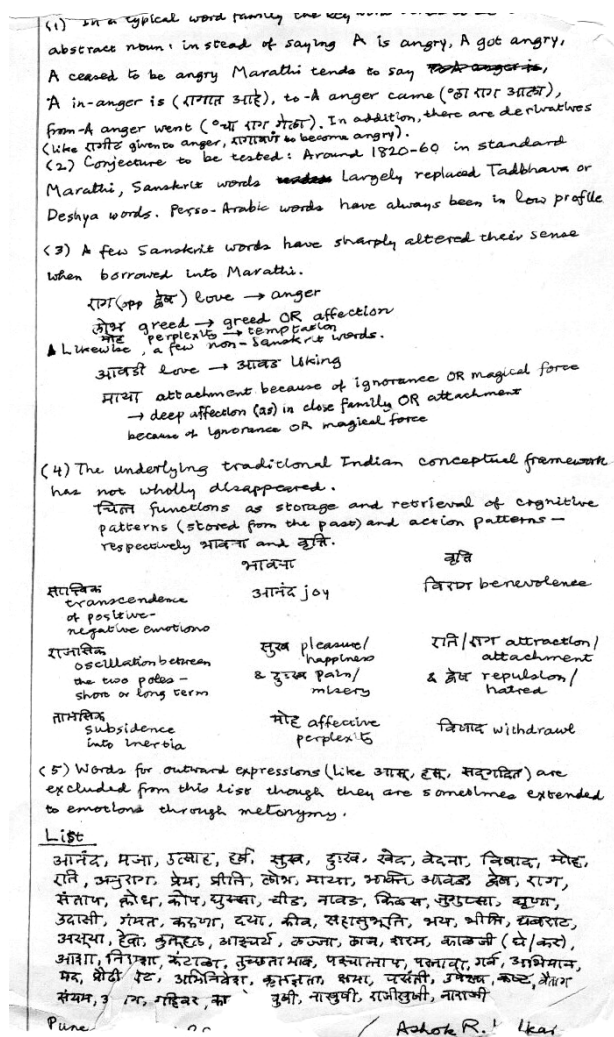 (1) In a typical word family the key word
abstract noun: in stead of saying A is angry, A got angry,
A ceased to be angry Marathi tends to say
A in-anger is (रागात आहे), to-A anger came (°ला राग आला),
from-A anger went (°चा राग गेला). In addition, there are derivatives
(like रागीट given to anger, रागावणे to become angry).
(2) Conjecture to be tested: Around 1820-60 in standard
Marathi, Sanskrit words largely replaced Tadbhava or
Deshya words. Perso-Arabic words have always been in low profile
(3) A few Sanskrit words have sharply altered their sense
when borrowed into Marathi.
राग (opp द्वेष) love → anger
लोभ greed → greed OR affection
मोह perplexity → temptation
Likewise, a few non-Sanskrit words.
आवडी love → आवड liking
माया attachment because of ignorance OR magical force
→ deep affection (as) in close family OR attachment
because of ignorance OR magical force
(4) The underlying traditional Indian conceptual framework
has not wholly disappeared.
चित्त functions as storage and retrieval of cognitive
patterns (stored from the past) and action patterns —
respectively भावना and वृत्ति.
भावना वृत्ति
सात्त्विक
transcendence आनंद joy benevolence
of positive-
negative emotions
राजसिक सुख pleasure/ रति/राग attraction/
oscillation between happiness attachment
the two poles — & दुःख pain/ & द्वेष repulsion/
short or long term misery hatred
तामसिक मोह affective विषाद withdrawl
subsidence perplexity
into inertia
(5) Words for outward expressions (like आसू, हसू, सद्गदित) are
excluded from this list though they are sometimes extended
to emotions through metonymy.
List
आनंद, मजा, उत्साह, हर्ष, सुख, दुःख, खेद, वेदना, विषाद, मोह,
रति, अनुराग, प्रेम, प्रीति, लोभ, माया, भक्ति, आवड, द्वेष, राग,
संताप, क्रोध, कोप, घुस्सा, चीड, नावड, किळस, जुगुप्सा, घृणा,
उदासी, गंमत, करुणा, दया, कीव, सहानुभूति, भय, भीति, घबराट,
असूया, हेवा, कुतूहल, आश्चर्य, लज्जा, लाज, शरम, काळजी (घे/कर),
आशा, निराशा, कंटाळा, तुच्छताभाव, पश्चात्ताप, पस्तावा, गर्व, अभिमान,
मद, प्रौढी, अभिनिवेश, कृतज्ञता, क्षमा, पसंती, उपेक्षा, कष्ट, वैताग
संयम, गहिवर, खुषी, नाखुषी, राजीखुषी, नाराजी
Pune Ashok R.